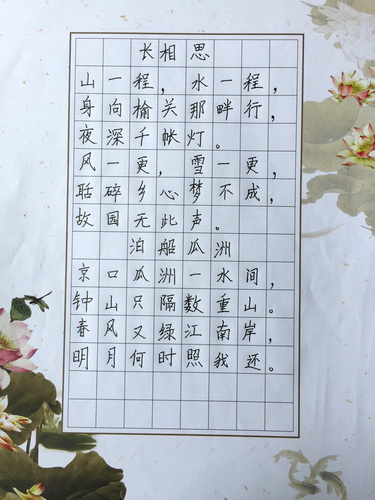 长相思
山一程，水一程，
身向榆关那畔行，
夜深千帐灯。
风一更，雪一更，
聒碎乡心梦不成，
故园无此声。
泊船瓜洲
京口瓜洲一水间，
钟山只隔数重山。
春风又绿江南岸，
明月何时照我还。